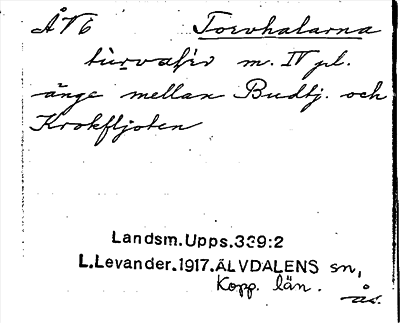 ÅVI6 Torvhalarna
m. IV pl.
änge mellan Budtj. och
Krokfljoten
Landsm.Upps.339:2
L.Levander.1917.ÄLVDALENS sn,
Kopp. län.
ås.